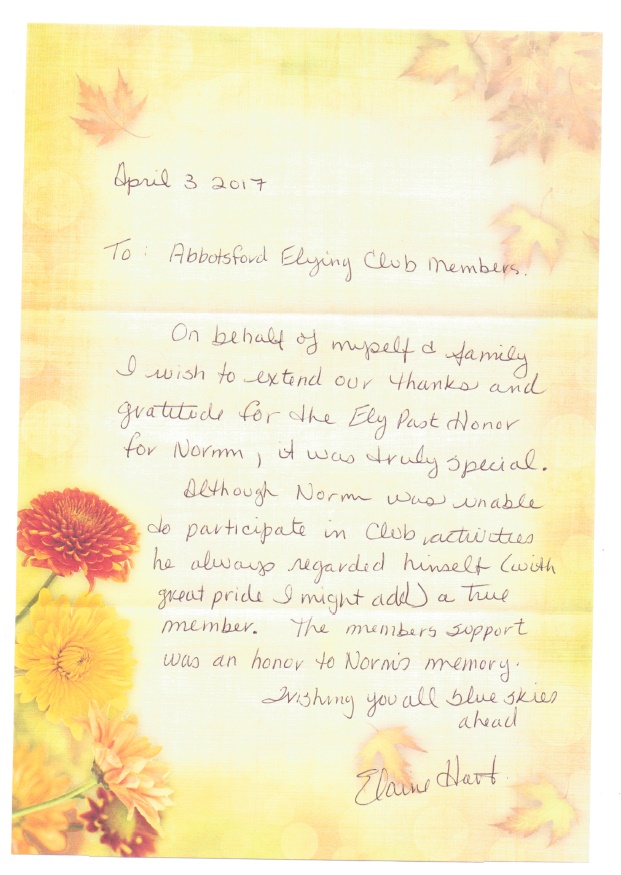 April 3 2017
To: Abbotsford Flying Club Members.
On behalf of myself & family
I wish to extend our thanks and
gratitude for the Fly Past Honor
for Norm, it was truly special.
Although Norm was unable
to participate in Club activities
he always regarded himself (with
great pride I might add) a true
member. The members support
was an honor to Norm's memory.
Wishing you all blue skies
ahead
Elaine Hart